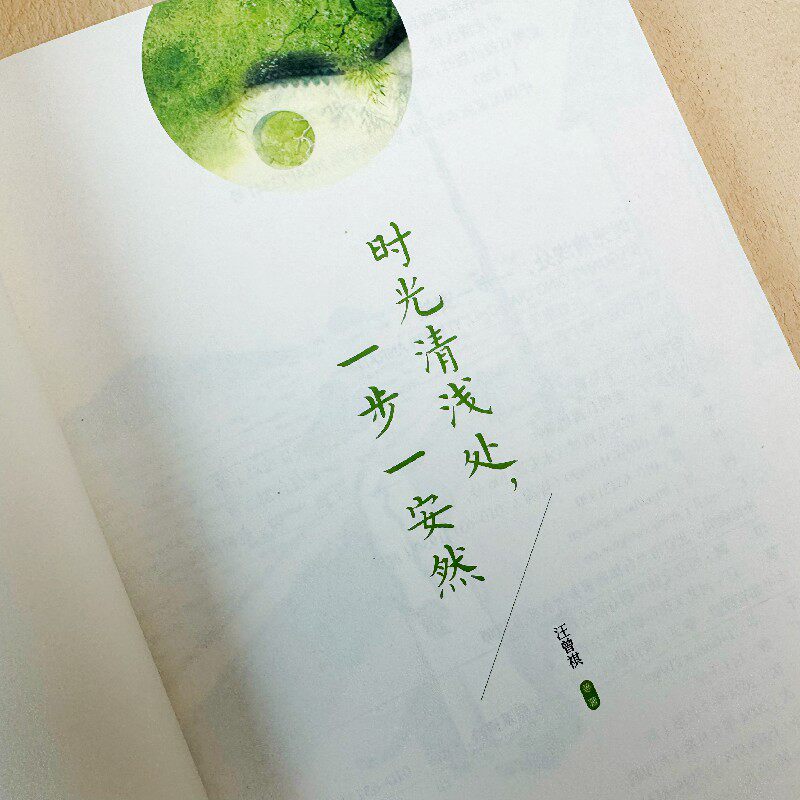 时光清浅处，
一步一安然
汪曾祺